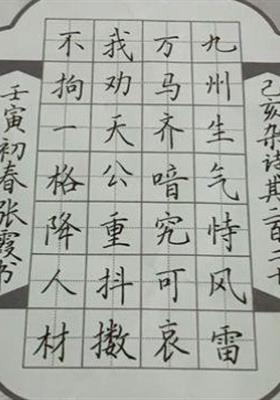 己亥杂诗其二百二十
九州生气恃风雷
万马齐喑究可哀
我劝天公重抖擞
不拘一格降人材
壬寅初春张霞书